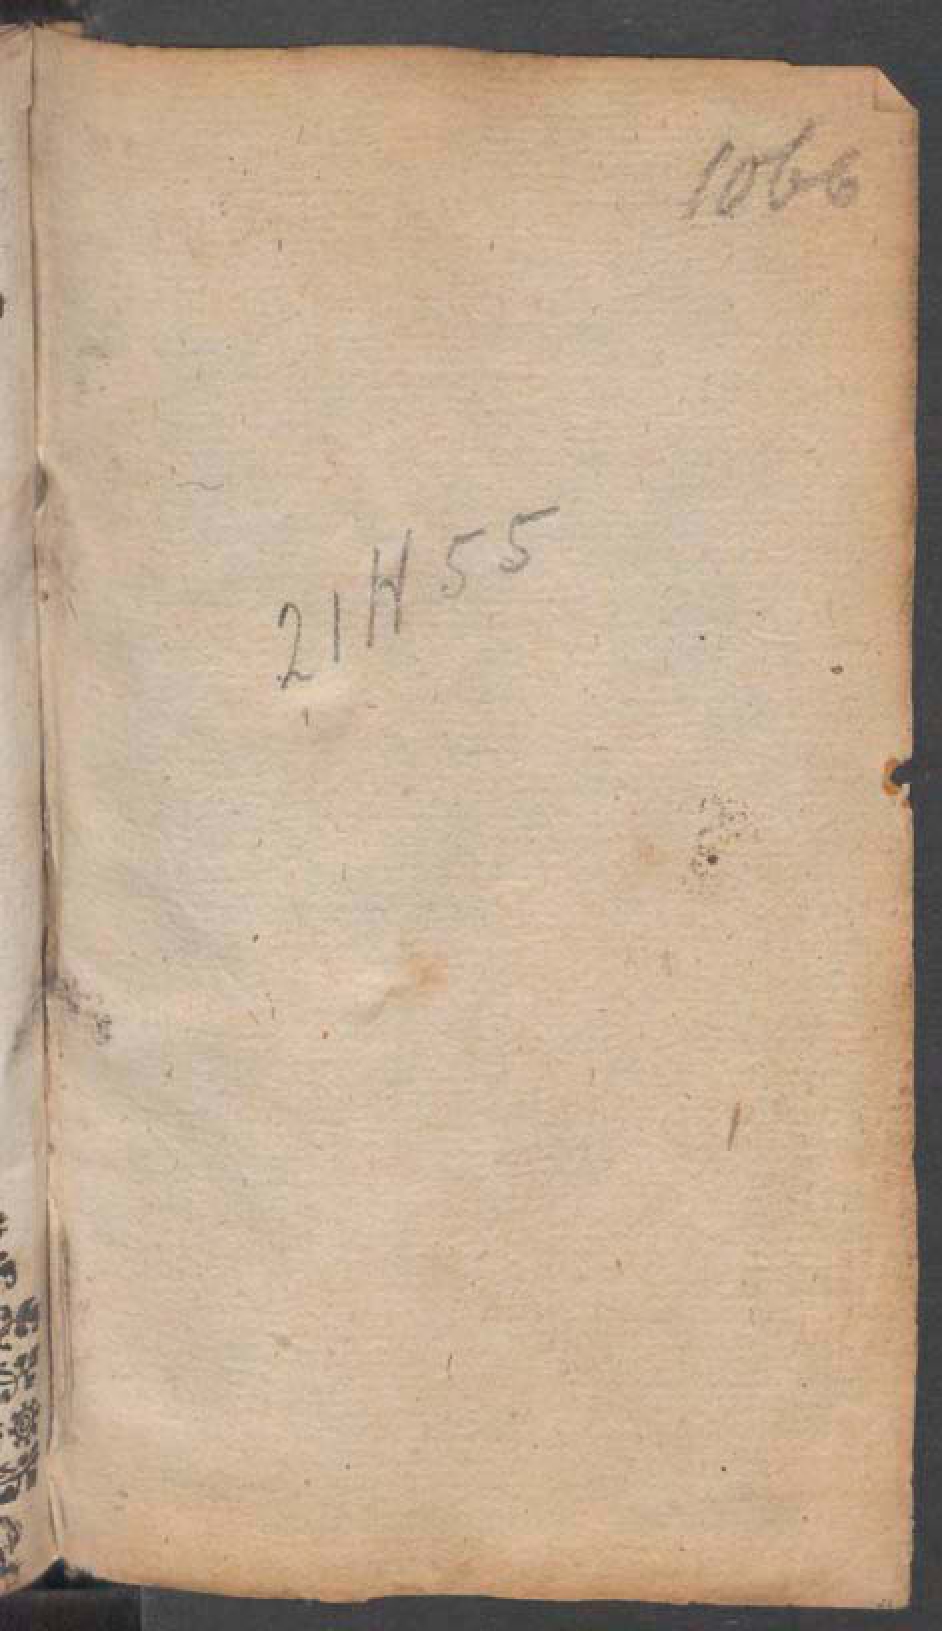 1066
21H55